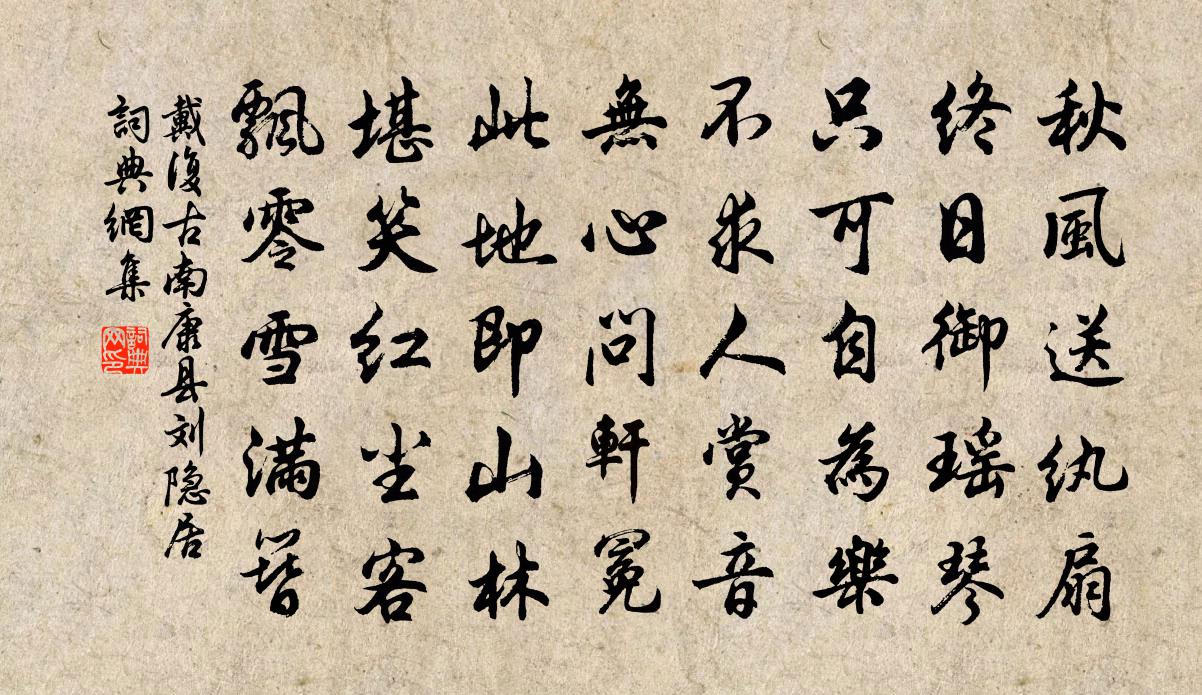 秋風送纨扇
終日御瑶琴
只可自為樂
不求人赏音
無心问軒冕
此地即山林
堪笑红尘客
飄零雪满簪
戴復古南康县刘隐居
詞典網集
詞典网印